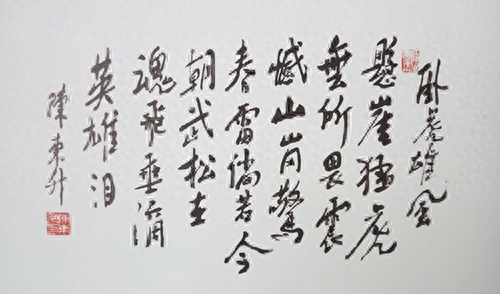 卧虎雄风
悬崖猛虎
无所畏震
憾山岗惊
春雷倘若今
朝武松在
魂飞垂滴
英雄泪
陈东升